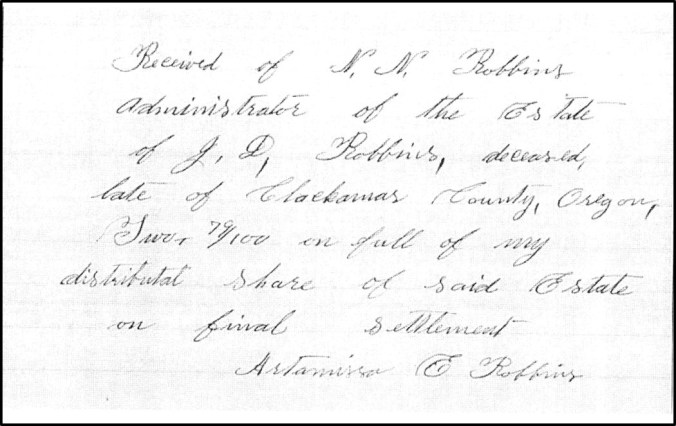 Received of N. N. Robbins
administrator of the Estate
of J. D. Robbins, deceased,
late of Clackamas County, Oregon,
Two, 79/100 on full of my
distributal share of said Estate
on final settlement
Artamissa E Robbins